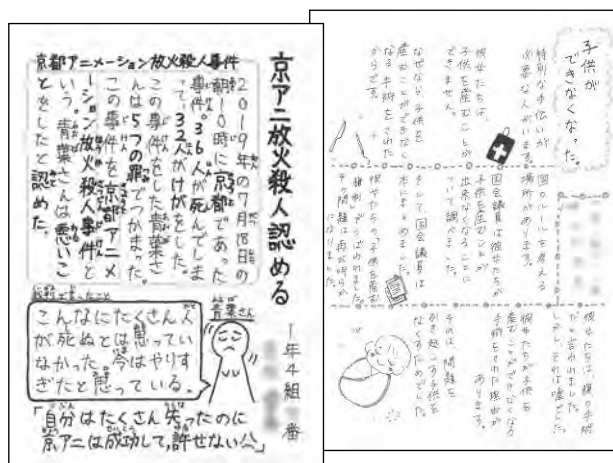 京アニ放火殺人認める
1年4組
番
京都アニメーション放火殺人事件
2019年の7月18日の
朝10時に京都であった
事件。36人が死んでしま
って、32人がけがをした。
この事件をした青葉さ
んは5つの罪でつかまった。
この事件を京都アニメ
ーション放火殺人事件と
いう。青葉さんは悪いこ
とをしたと認めた。
裁判で言ったこと
青葉さん
こんなにたくさん人
が死ぬとは思ってい
なかった。今はやりす
ぎたと思っている。
「自分はたくさん失ったのに
京アニは成功して、許せない」
子供が
できなくなった。
特別な手伝いが
必要な人がいます。
彼女たちは、
子供を産むことが
できません。
なぜなら子供を
産むことができなく
なる手術をされた
からです。
国のルールを考える
場所があります。
国会議員は彼女たちが
子供を産むことが
出来なくなることに
ついて調べました。
そして、国会議員は
本にまとめました。
彼女たちの「子供を産む
権利」がうばわれました。
その問題は再び明らか
になりました。
彼女たちは、
だと言われました。
しかし、それは嘘でした。
彼女たちが子供を
産むことができなくなる
手術をされた理由が
あります。
それは、問題を
引き起こす子供を
なくすためでした。